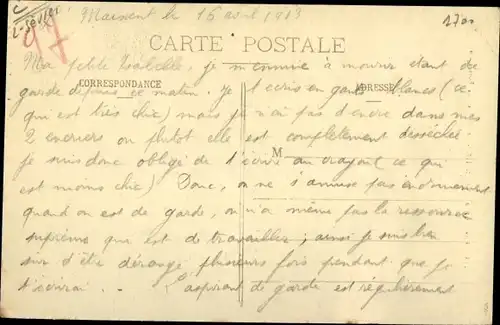 C
2-Sèvres
97
Maixent le 16 avril 1913
1700
CARTE POSTALE
Ma petite Isabelle, je m'ennuie à mourir étant de
CORRESPONDANCE
ADRESSE
garde depuis ce matin. Je t'écris en gants blancs (ce
qui est très chic) mais je n'ai pas d'encre dans mes
2 encriers ou plutôt elle est complètement desséchée
M
je suis donc obligé de t'écrire au crayon (ce qui
est moins chic) Donc, on ne s'amuse pas énormément
quand on est de garde, on n'a même pas la ressource
suprême qui est de travailler; ainsi je suis bien
sûr d'être dérangé plusieurs fois pendant que je
t'écrirai. L'aspirant de garde est régulièrement